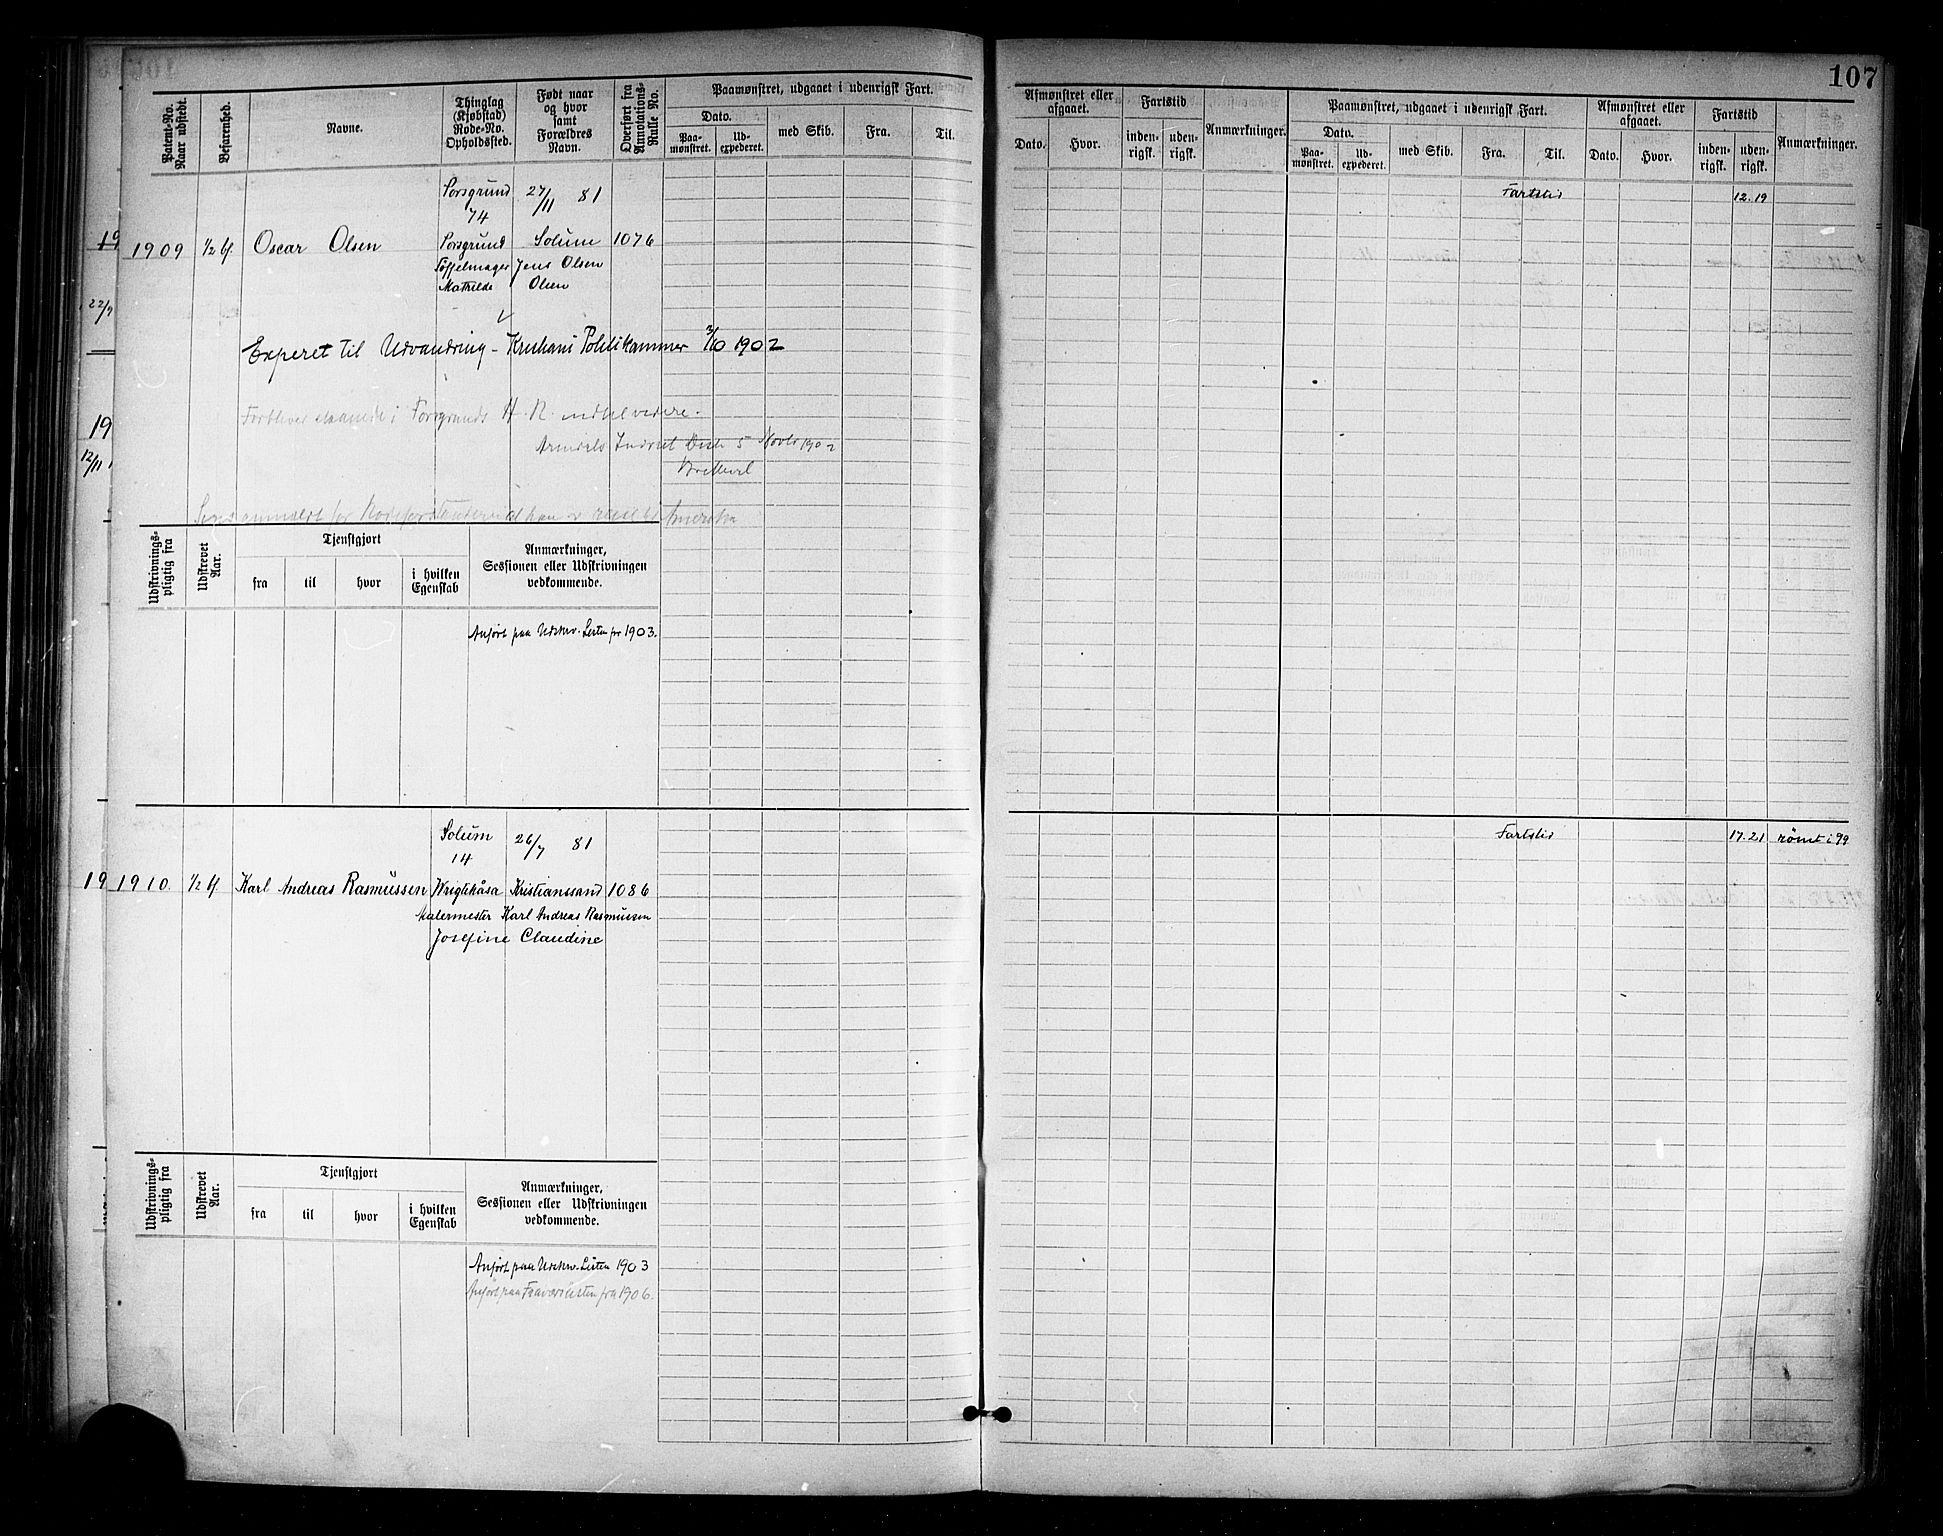 107
Patent-No. Naar udstedt.
Befarenhed.
Navne.
Thinglag (Kjøbstad) Rode-No. Opholdssted.
Født naar og hvor samt Forældres Navn.
Overført fra Annotations-Rulle No.
Paamønstret, udgaaet i udenrigsk Fart.
Dato.
Paa-mønstret.
Ud-expederet.
med Skib.
Fra.
Til.
Afmønstret eller afgaaet.
Dato.
Hvor.
Fartstid
inden-rigsk.
uden-rigsk.
Anmærkninger.
Paamønstret, udgaaet i udenrigsk Fart.
Dato.
Paa-mønstret.
Ud-expederet.
med Skib.
Fra.
Til.
Afmønstret eller afgaaet.
Dato.
Hvor.
Fartstid
inden-rigsk.
uden-rigsk.
Anmærkninger.
Porsgrund 27/11 81
74
Fartstid 12.19
1909 1/2 bf. Oscar Olsen Porsgrund Solum 1076
Tøffelmager Jens Olsen
Mathilde Olsen
til Udvandring - Politikammer 3/10 1902
i Porsgrunds H. R. indtil videre.
Arendals 5 Novbr 1902
Amerika
Udskrivnings-pligtig fra
Udskrevet Aar.
Tjenstgjort
fra
til
hvor
i hvilken Egenskab
Anmærkninger, Sessionen eller Udskrivningen vedkommende.
Anført paa Udskrv. Listen for 1903.
Solum 26/7 81
14
Fartstid 17.21 rømt i 99
1910. 1/2 bf Karl Andreas Rasmussen Kristianssand 1086
Malermester Karl Andreas Rasmussen
Josefine Claudine
Udskrivnings-pligtig fra
Udskrevet Aar.
Tjenstgjort
fra
til
hvor
i hvilken Egenskab
Anmærkninger, Sessionen eller Udskrivningen vedkommende.
Anført paa Udskrv. Listen 1903
Anført paa Fraværslisten fra 1906.
19
22/9
19
12/11
19